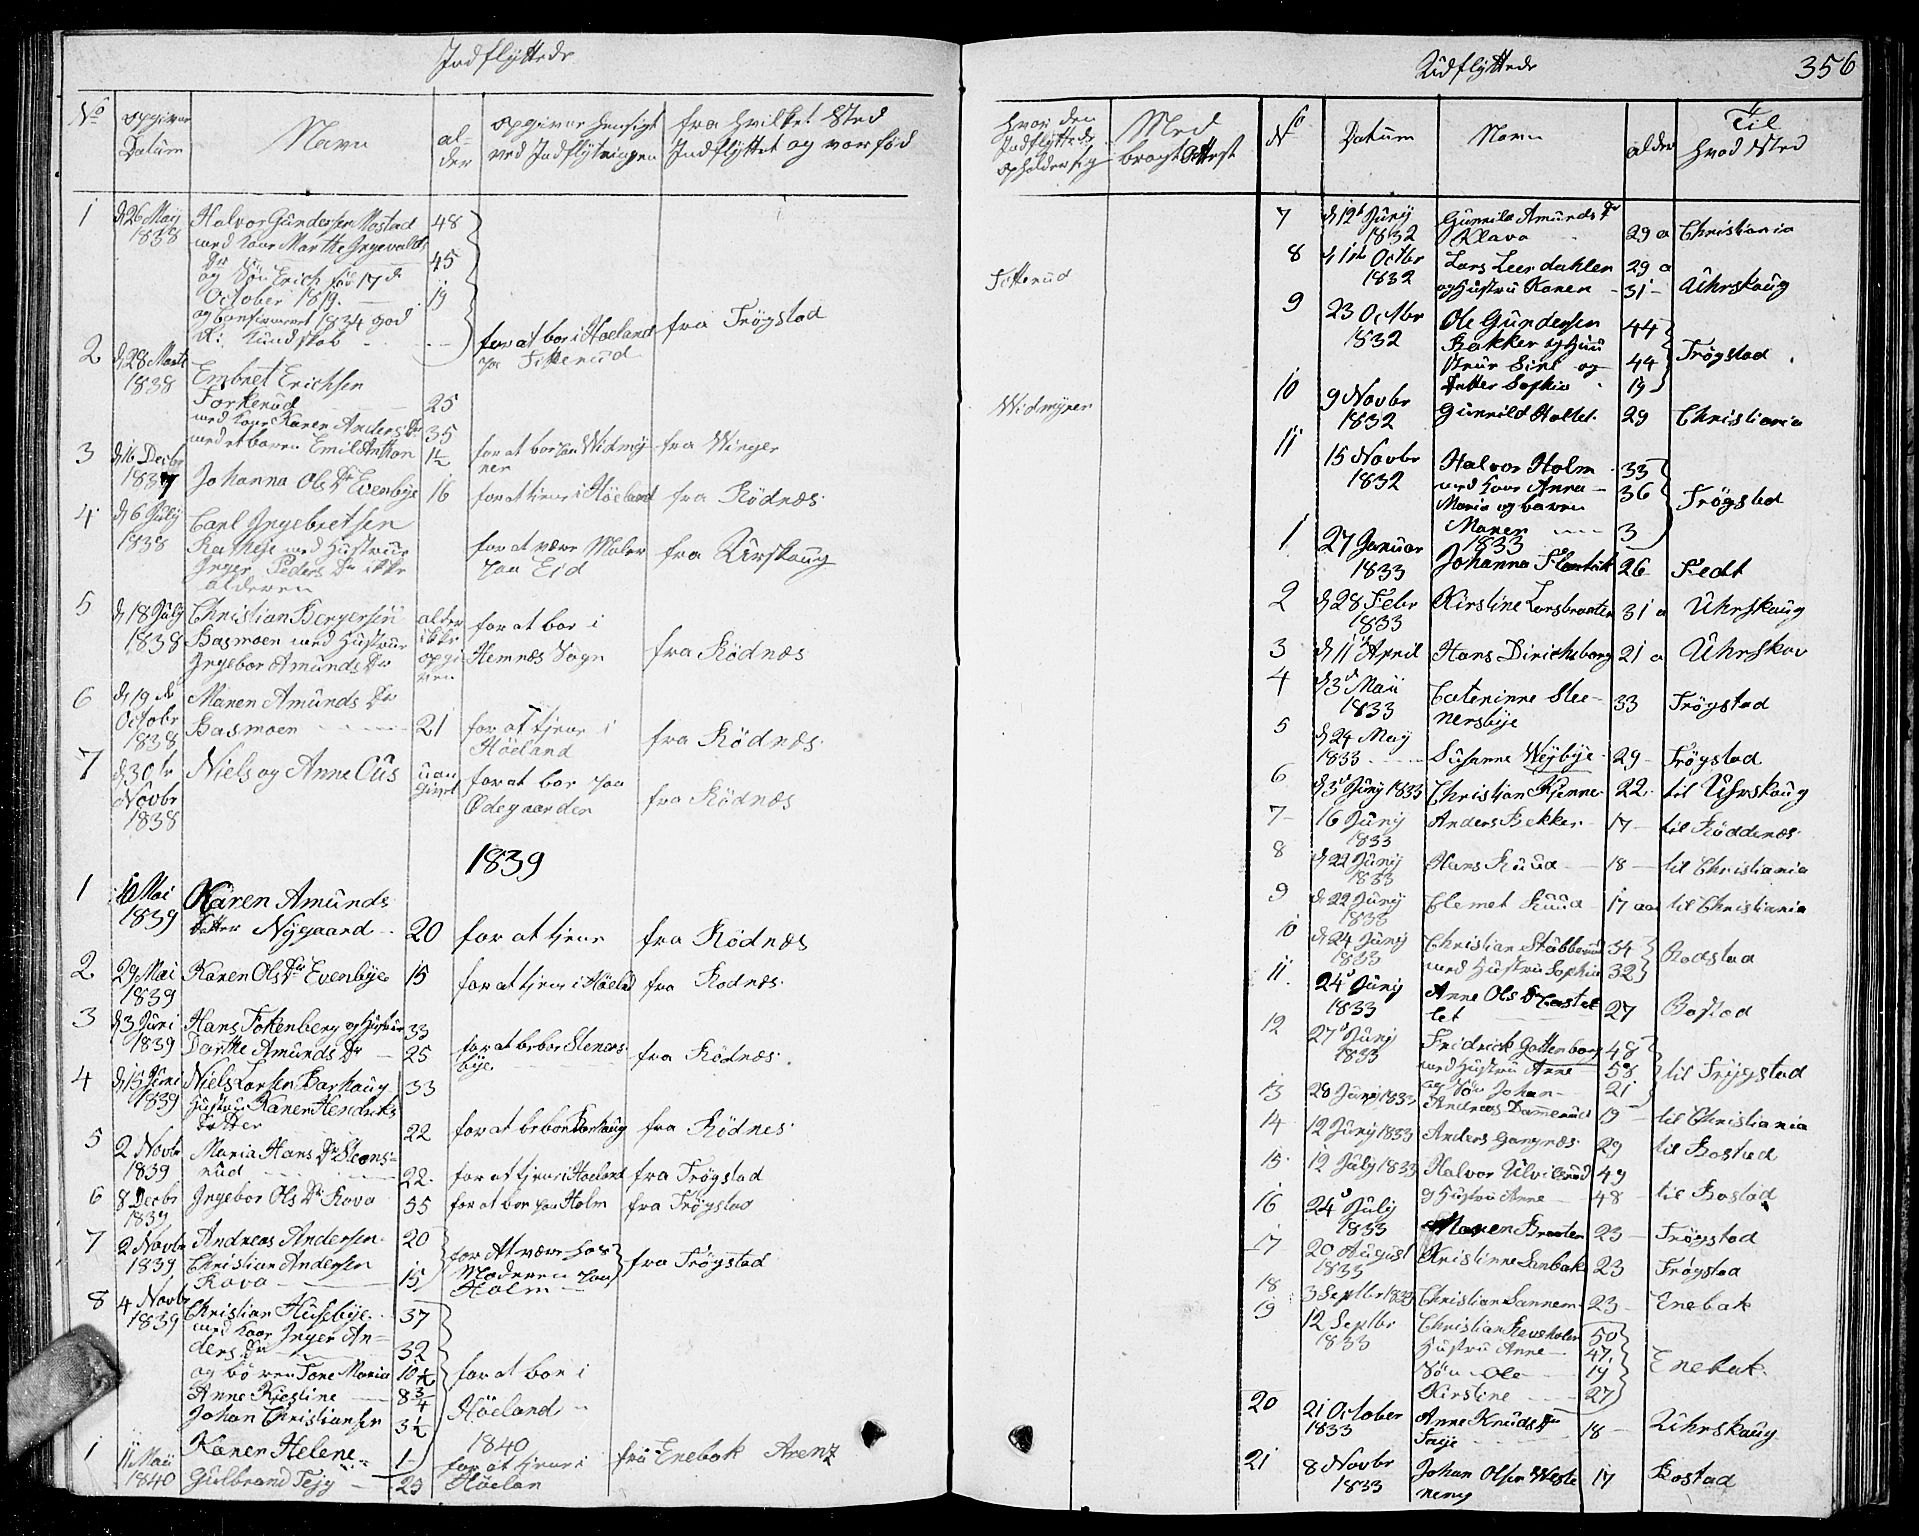 Indflyttede
No
opgiver Datum
Navn
alder
opgiver hensigt ved Indflytningen
fra hvilket Sted Indflyttet og var fød
1 d 26 Maij 1838 Halvor Gundersen Mostad 48
med Kone Marthe Ingevalds Dr 45
og Søn Erich fød 17de
October 1819. 19
og confirmeret 1834 god
Kundskab for at boe i Høeland paa Fitterud fra Trøgstad
2 d 28 Marts 1838 Embret Erichsen
Forkerud 25
med Kone Karen Anders Dr 35
med et barn Emil Anthon 1½ for at boe paa Widmyrner fra Winger
3 d 16 Decbr 1837 Johanna Ols Dr Evenbye 16 for at tjene i Høeland fra Rødnæs
4 d 6 July 1838 Carl Ingebretsen
med Hustrue
Inger Peders Dr ikke
alderen for at være Maler paa Eid fra Urskoug
5 d 18 July 1838 Christian Bergersen
Basmoen med Hustrue
Ingebor Amunds Dr alder ikke opgiven for at boe i Hemnæs Sogn fra Rødnæs
6 d 19 de Octobr 1838 Maren Amunds Dr
Basmoen 21 for at tjene i Høeland fra Rødnæs
7 d 30te Novbr 1838 Niels og Anne Ous for at boe paa Ødegaarden fra Rødnæs
1839
1 Mai 1839 Karen Amunds
Datter Nygaard 20 for at tjene fra Rødnæs
2 29 Mai 1839 Karen Ols Dr Evenbye 15 for at tjene i Høeland fra Rodnæs
3 d 3 Juni 1839 Hans Fokenberg og Hustrue 33
Dorthe Amunds Dr 25 for at beboe Stenersbye fra Rødnæs
4 d 15 Juni 1839 Niels Larsen Barhaug 33
Hustru Karen Hendriks
Datter 22 for at beboe Barhaug fra Rødnes
5 2 Novbr 1839 Maria Hans Dr Steensrud 22 for at tjene i Høeland fra Trøgstad
6 8 Decbr 1839 Ingebor Ols Dr Kova 55 for at boe paa Holm fra Trøgstad
7 2 Novbr 1839 Andreas Andersen 20
Christian Andersen
Kova 15 for At være hos Moderen paa Holm fra Trøgstad
8 4 Novbr 1839 Christian Husebye 37
med Kone Inger Anders Dr 32
og børren Tone Maria 10½
Anne Kirstine 8¾
Johan Christiansen 3½
Karen Helene 1 for at boe i Høeland
1840
1 11 Maii 1840 Gulbrand Tejy 23 for at tjene i Høelan fra Enebak Arenz
Udflyttede
356
Hvor den Indflyttede opholder sig
Med bragt Attest
No
Datum
Navn
alder
Til hvad Sted
Fitterud
Widmyrer
7 d 12t Junij 1832 Gunnild Amunds Dr
Klava 29 a Christiania
8 Octbr 1832 Lars Leerdahlen 29 a
og Hustru Karen 31 Uhrskoug
9 23 Octbr 1832 Ole Gundersen 44
Bakker og Hustrue Siri og 44
Datter Sophie 19 Trøgstad
10 9 Novbr 1832 Gunnild Holtet 29 Christiania
11 15 Novbr 1832 Halvor Holm 33
med Kone Anna 36
Maria og barn
Maren 3 Trøgstad
1833
1 27 Januar 1833 Johanna 26 Fedt
2 d 28 Febr 1833 Kirstine Larsbraaten 31 a Uhrskoug
3 d 11t April Hans Dirichsborg 21 a Uhrskov
4 d 3d Maii 1833 Caterinne Steenersbye 33 Trøgstad
5 d 24 May 1833 Susanne Weybye 29 Trøgstad
6 d 3d Junij 1833 Christian Kjenne 22 til Uhrskoug
7 16 Junij 1833 Anders Bekker 17 til Røddenæs
8 d 22 Junij 1833 Hans Ruud 18 til Christiania
9 d 22 Junij 1833 Clemet Ruud 17 aar til Christiania
10 d 24 Junij 1833 Christian Stabberud 34
med Hustru Sophia 32 Rodstad
11 24d Junij 1833 Anne Ols Dr Castellet 27 Bastad
12 27d Junij 1833 Fridrick Gottenborg 48
med Hustru Anne 58
og Søn Johan 21 til Trygstad
13 28 Junij 1833 Andreas Dammerud 19 til Christiania
14 12 Junij 1833 Anders Gangnæs 29 til Bastad
15 12 July 1833 Halvor Ulvilsrud 49
og Hustru Anne 48 til Bastad
16 24d July 1833 Maren Braaten 23 Trøgstad
17 20 August 1833 Kristinne Sanbak 23 Trøgstad
18 3 Septbr 1833 Christian Sannem 23 Enebak
19 12 Septbr 1833 Christian Revsholen 50
Hustru Anne 47
Søn Ole 19
Kirstine 27 Enebak
20 21 October 1833 Anne Knuds Dr
Foye 18 Uhrskoug
21 8 Novbr 1833 Johan Olsen Westeneng 17 Bastad